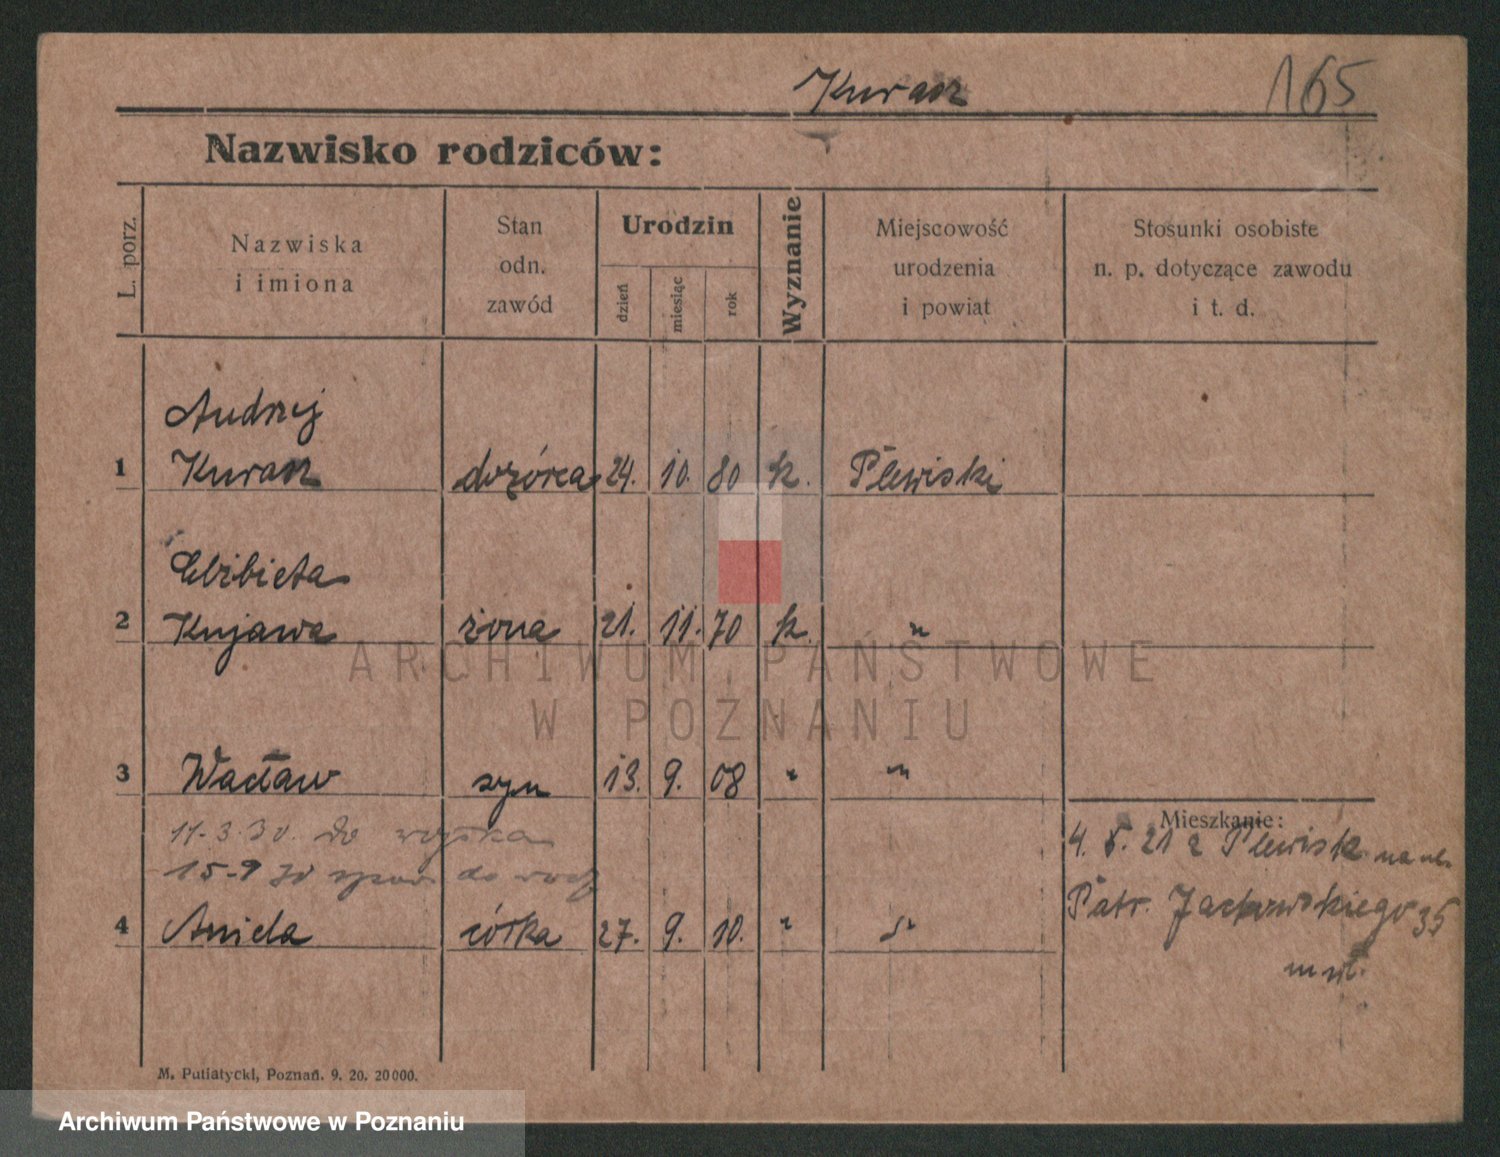 Kurasz 165
Nazwisko rodziców:
L. porz.
Nazwiska
i imiona
Stan
odn.
zawód
Urodzin
dzień
miesiąc
rok
Wyznanie
Miejscowość
urodzenia
i powiat
Stosunki osobiste
n. p. dotyczące zawodu
i t. d.
Andrzej
1 Kurasz dozórca 24. 10. 80 k. Plewiski
Elżbieta
2 Kujawa żona 21. 11. 70 k. "
ARCHIWUM PAŃSTWOWE
W POZNANIU
3 Wacław syn 13. 9. 08 " "
Mieszkanie:
11-3.30. do wojska
4. 5. 21 z Plewisk na ul.
15-9 30 do
Patr. Jackowskiego 35
4 Aniela córka 27. 9. 10. " "
M. Putiatycki, Poznań. 9. 20. 20000.
Archiwum Państwowe w Poznaniu